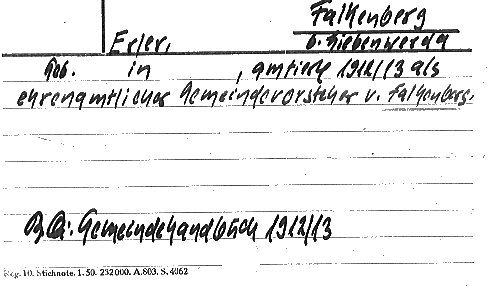 Falkenberg
Erler,
b. Liebenwerda
Geb. in , amtierte 1912/13 als
ehrenamtlicher Gemeindevorsteher v. Falkenberg.
Qu: Gemeindehandbuch 1912/13
Reg. 10. Stichnote. 1. 50. 232000. A.803. S. 4062